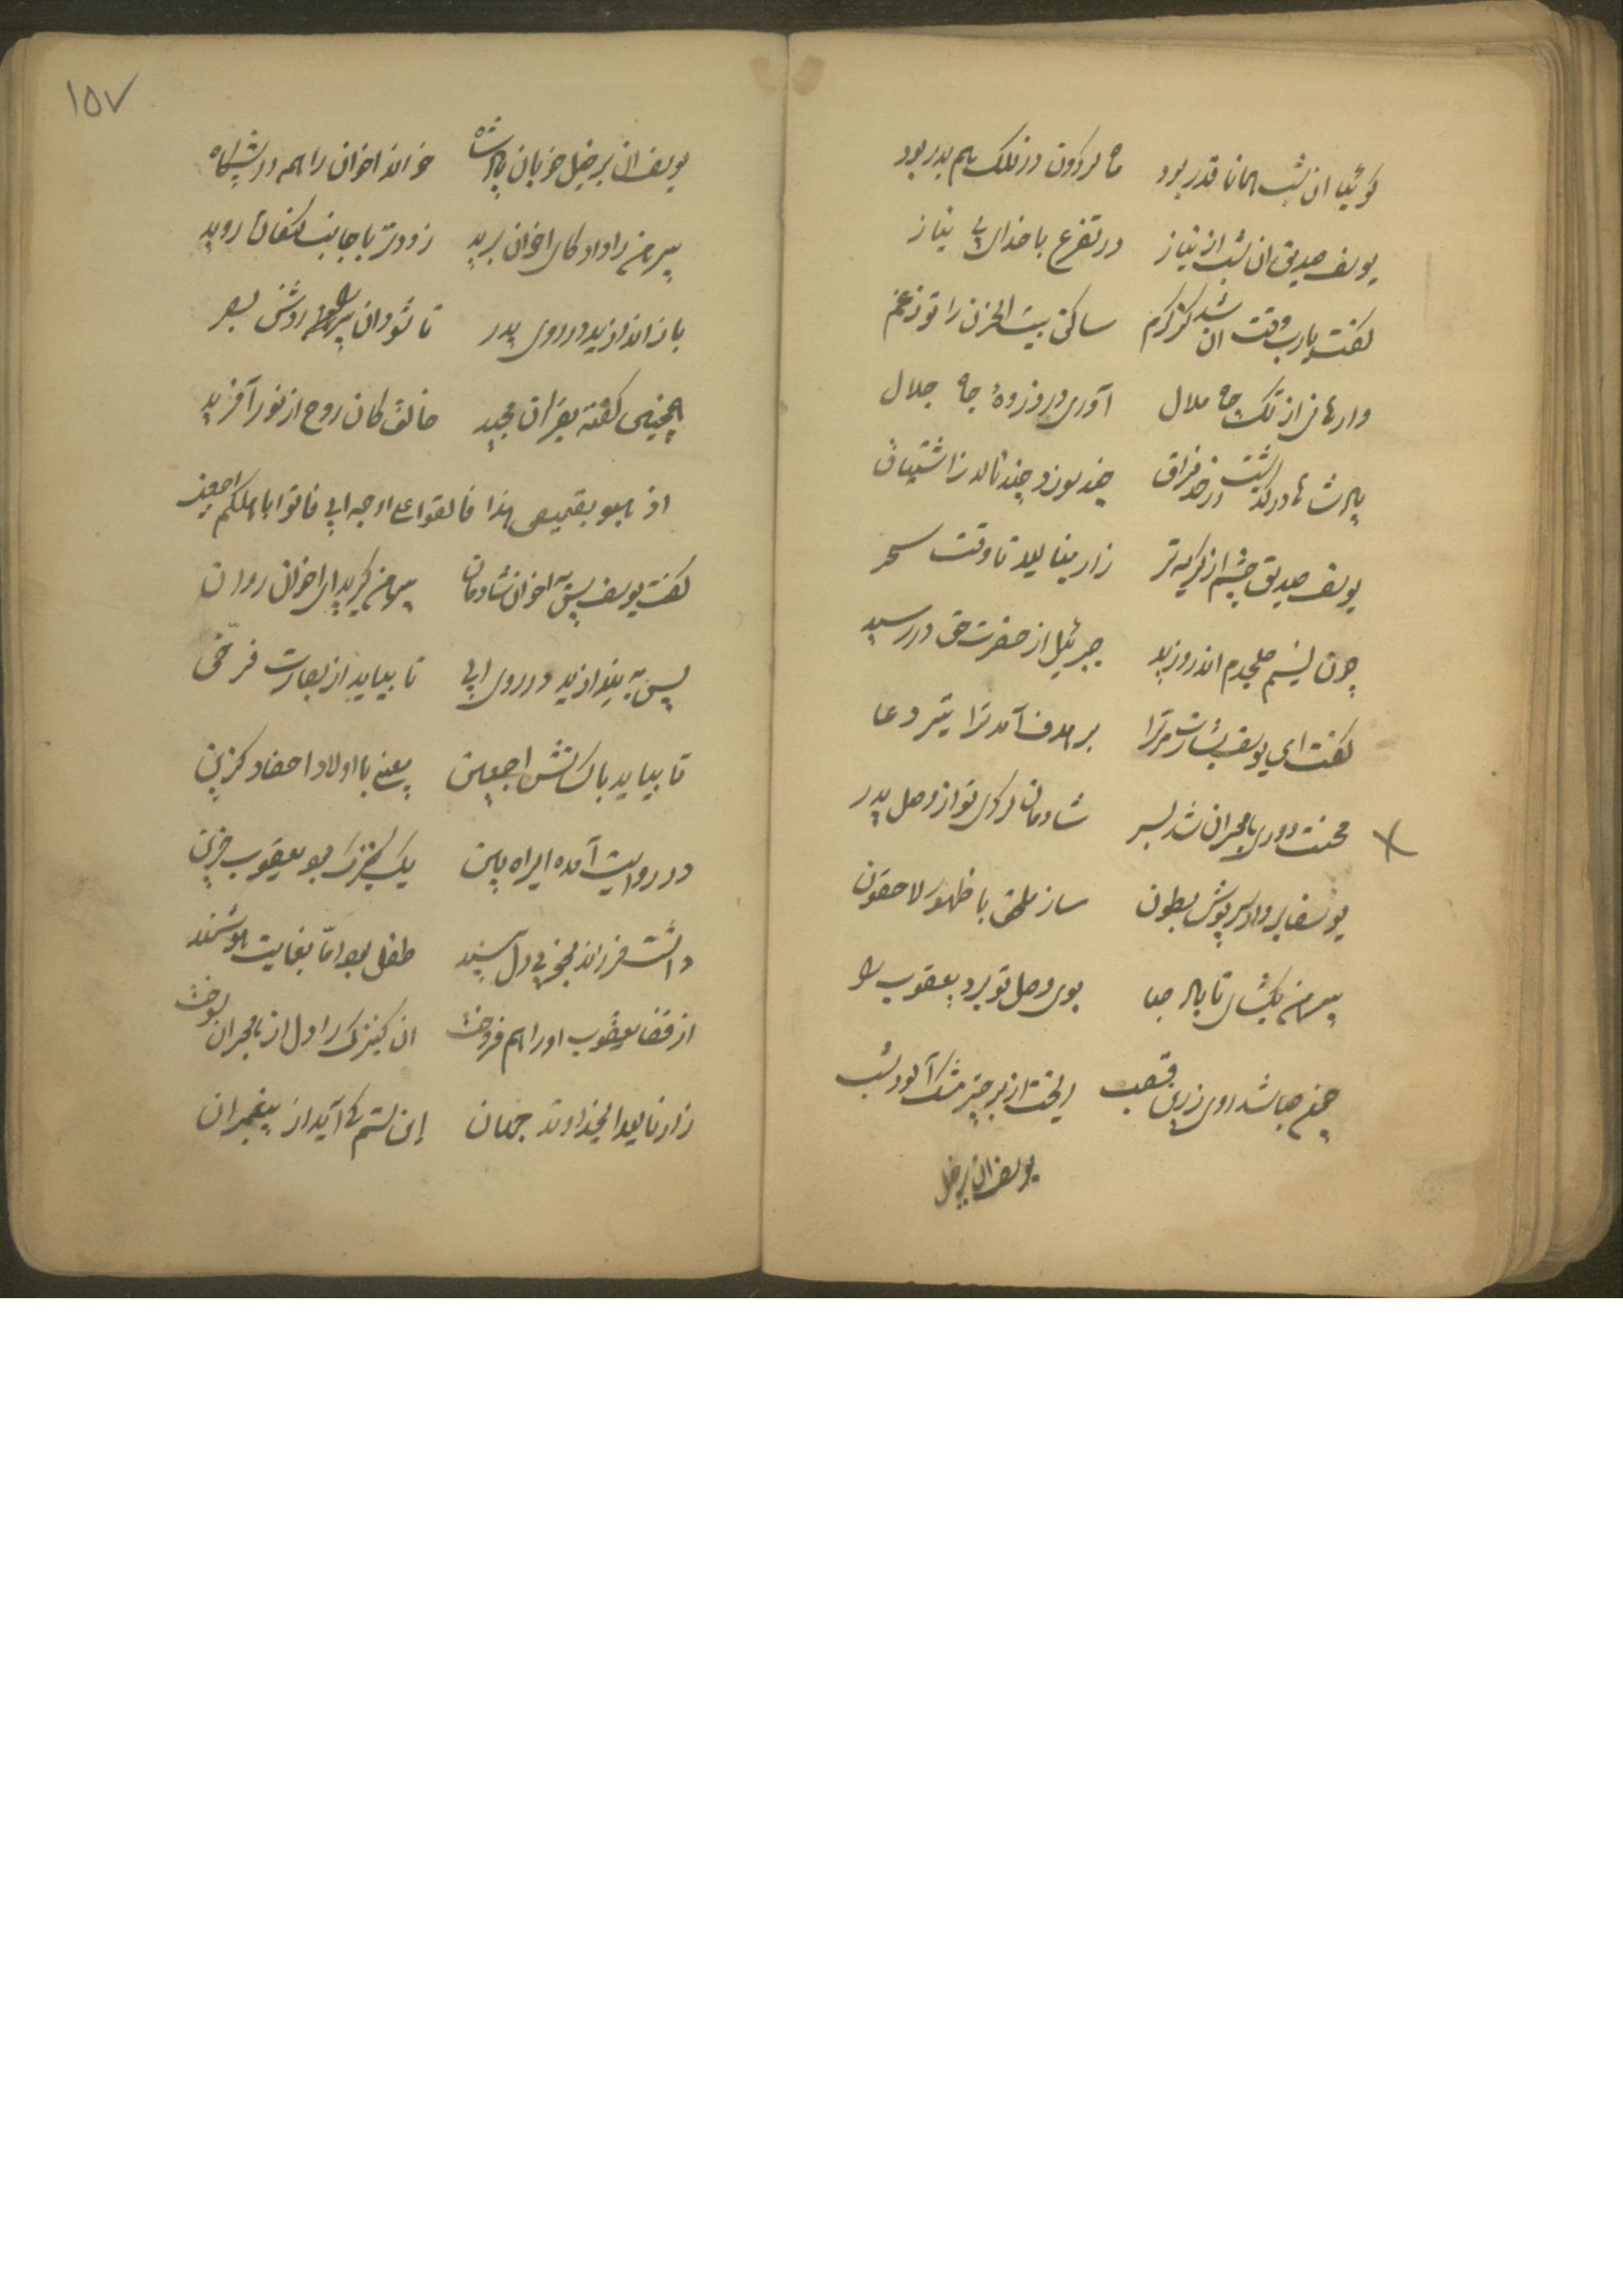 گوئیا ان شب همانا قدر بود ماه گردون در فلک هم بدر بود
یوسف صدیق ان شب از نیاز در تضرع با خدای بی نیاز
گفت یارب وقت ان شد کز کرم ساکن بیت الحزن را تو ز غم
وارهانی از تک چاه ملال آوری در ذروهٔ جاه جلال
پادشاها درگذشت از حد فراق چند سوزد چند نالد ز اشتیاق
یوسف صدیق چشم از گریه تر زار مینالید تا وقت سحر
چون نسیم صبحدم اندر وزید جبرئیل از حضرت حق در رسید
گفت ای یوسف بشارت مر ترا بر هدف آمد ترا تیر دعا
محنت دوری با هجران شد بسر شادمان گردی تو از وصل پدر
یوسفا بردار سرپوش بطون ساز ملحق با ظهور لاحقون
پیرهن بگشای تا باد صبا بوی وصل تو برد یعقوب را
صبا شد زرین قصب ریخت از بر چتر مشک آلود شب
یوسف ان بر خیل
۱۵۷
یوسف ان بر خیل خوبان پادشاه خواند اخوان را همه در پیشگاه
پیرهن را داد کای اخوان برید زودتر با جانب کنعان روید
باز اندازید در روی پدر تا شود ان پیر را روشن بصر
همچنین گفته بقران مجید خالق کان روح از نور آفرید
اذهبوا بقمیصی هذا فالقوا علی وجه ابی فاتوا باهلکم اجمعین
گفت یوسف پس به اخوان شادمان پیرهن گیرید ای اخوان روان
پس به بیندازید در روی ابی تا بیاید از بصارت فرخی
تا بیاید با کسانش اجمعین یعنی با اولاد احفاد گزین
در روایت آمده ایراد این یک کنیزک بود یعقوب حزین
داشت فرزند دل پسند طفل بود امّا بغایت هوشمند
از قضا یعقوب او را هم فروخت ان کنیزک را دل از هجران بسوخت
زار نالید ای خداوند جهان این ستم کی آید از پیغمبران